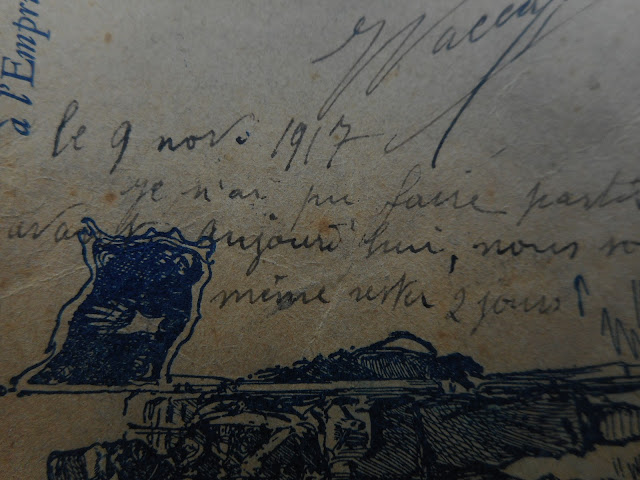 à l'Empr
le 9 nov. 1917
je n'ai pu faire parti
avant aujourd'hui, nous so
même rester 2 jours